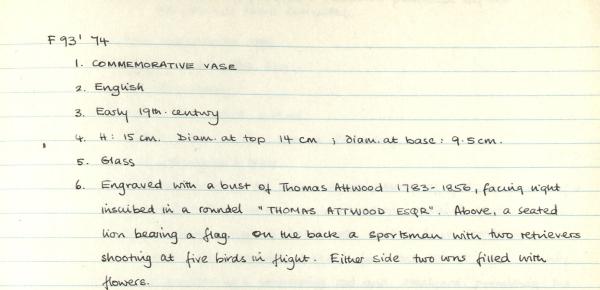 F 93' 74
1. COMMEMORATIVE VASE
2. English
3. Early 19th. century
4. H: 15 cm. Diam. at top 14 cm ; diam. at base: 9.5 cm.
5. Glass
6. Engraved with a bust of Thomas Attwood 1783-1856, facing right
inscribed in a roundel "THOMAS ATTWOOD ESQR". Above, a seated
lion bearing a flag. On the back a sportsman with two retrievers
shooting at five birds in flight. Either side two urns filled with
flowers.